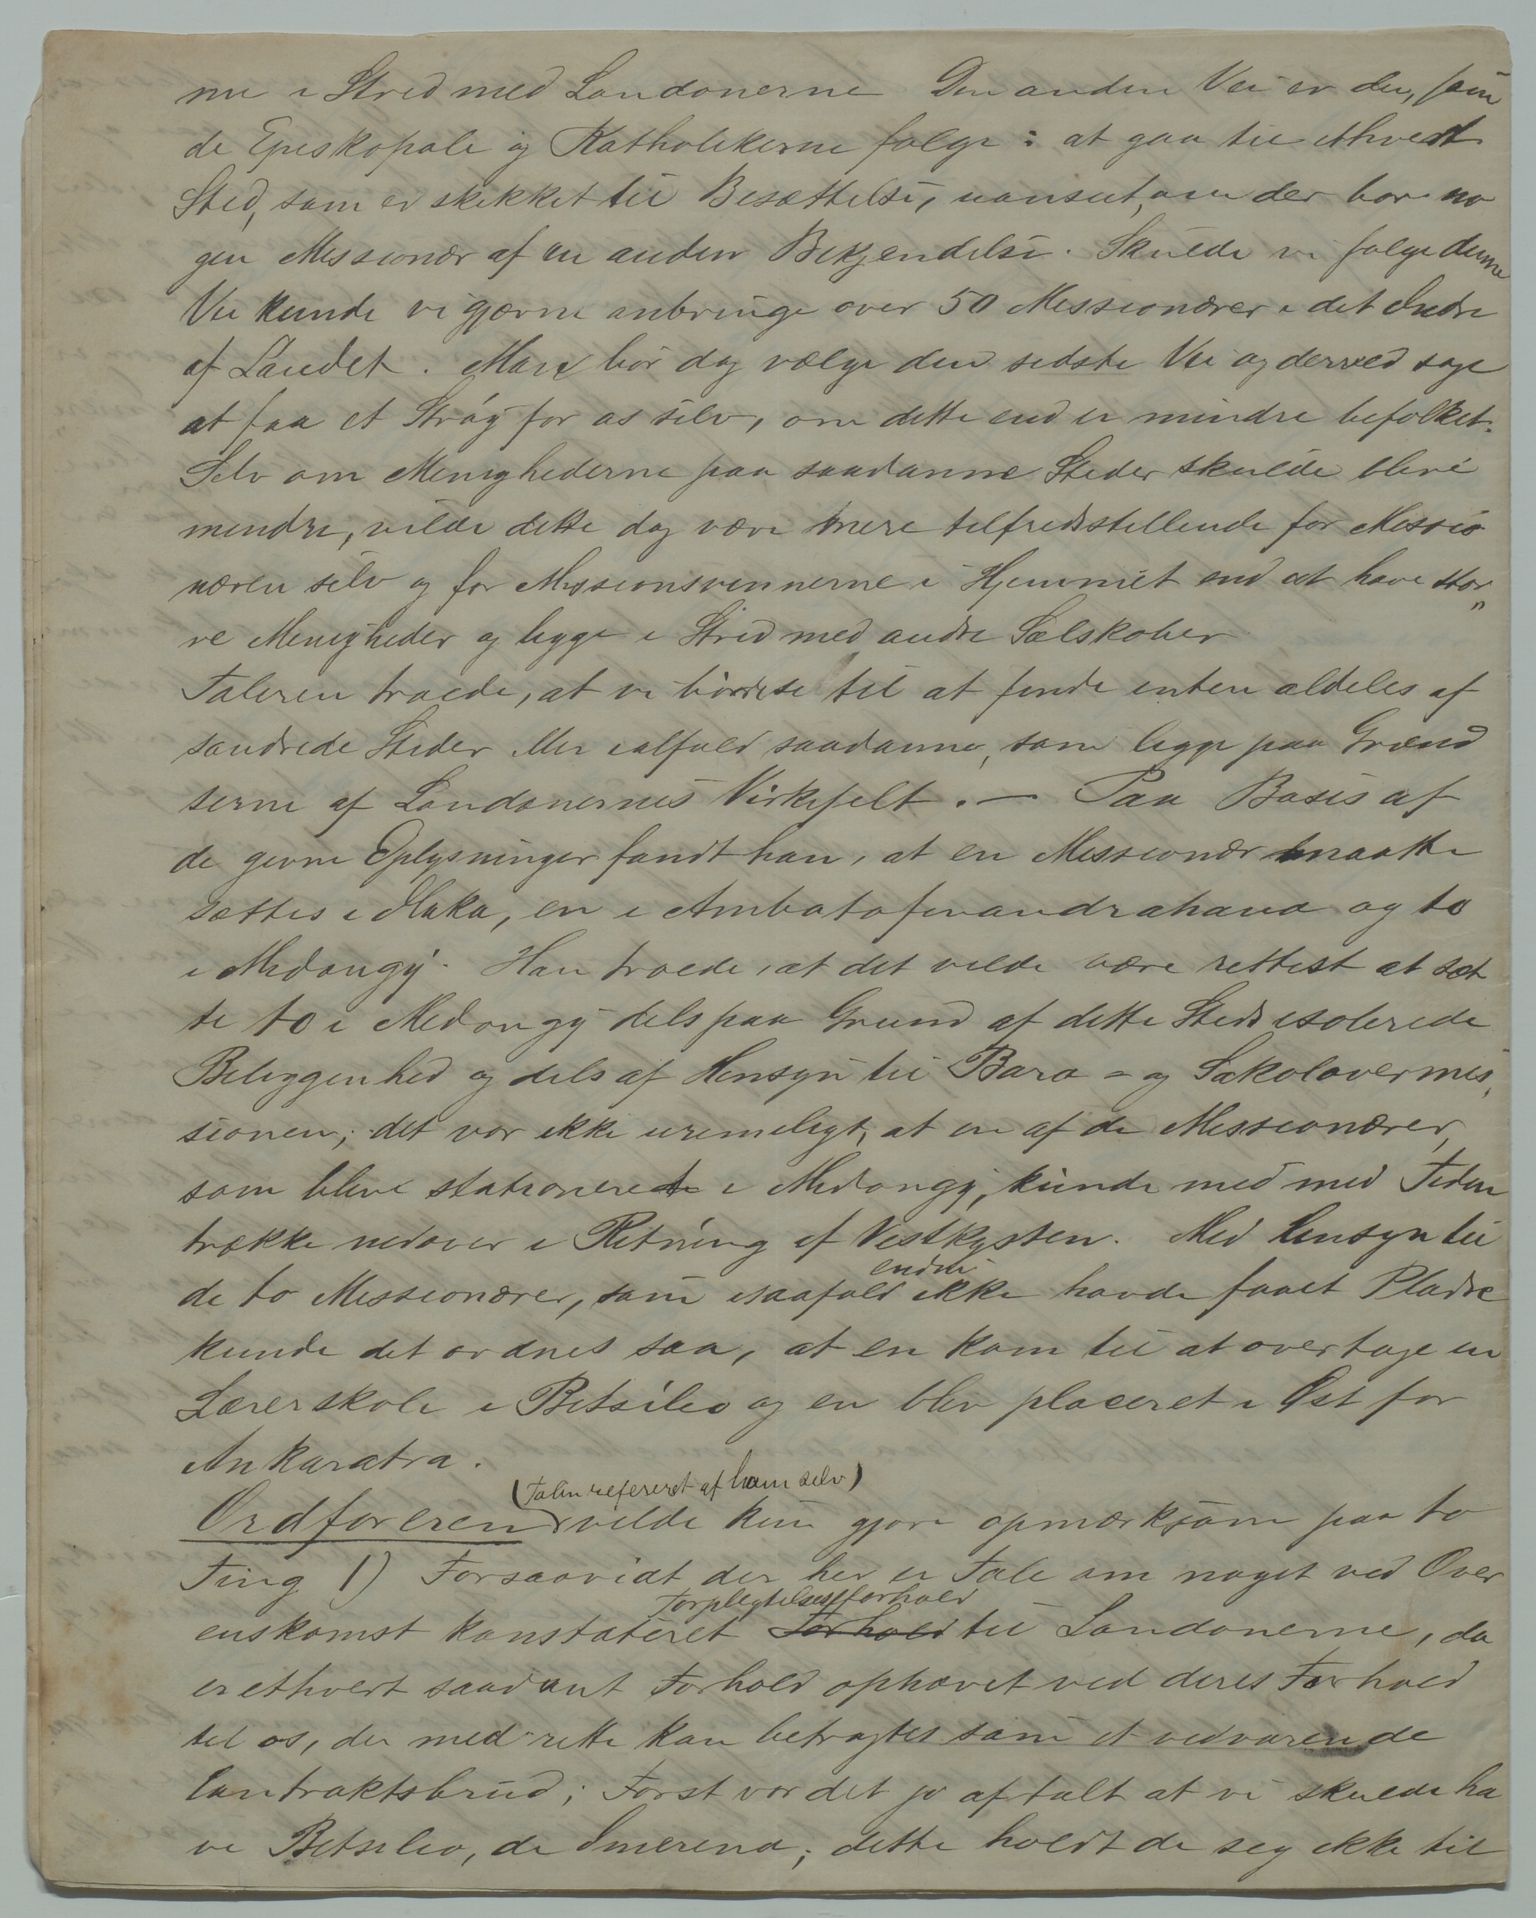 me i Strid med Londonerne Den anden Vei er den, som
de Episkopale og Katholikerne følge: at gaa til ethvert
Sted, som er skikket til Besættelse, uanseet, om der bor no
gen Missionær af en anden Bekjendelse. Skulde vi følge denne
Vei kunde vi gjerne anbringe over 50 Missionærer i det Indre
af Landet. Man bør dog vælge den sidste Vei og derved søge
at faa et Strøg for os selv, om dette end er mindre befolket.
Selv om Menighederne paa saadanne Steder skulde blive
mindre, vilde dette dog være mere tilfredsstillende for Missio
næren selv og for Missionsvennerne i Hjemmet end at have stør„
re Menigheder og ligge i Strid med andre Selskaber
Taleren troede, at vi burde se til at finde enten aldeles af
sondrede Steder eller ialfald saadanne, som ligge paa Grænd
serne af Londonernes Virkefelt. — Paa Basis af
de givne Oplysninger fandt han, at en Missionær maatte
sættes i Ilaka, en i Ambatofinandrahana og to
i Midongy. Han troede, at det vilde være rettest at sæt
te to i Midongy dels paa Grund af dette Steds isolerede
Beliggenhed og dels af Hensyn til Bara- og Sakalavermis,
sionen; det var ikke urimeligt, at en af de Missionærer,
som bleve stationerede i Midongy, kunde med med Tiden
trække nedover i Retning af Vestkysten. Med Hensyn til
de to Missionærer, som isaafald endnu ikke havde faaet Pladse
kunde det ordnes saa, at en kom til at overtage en
Lærerskole i Betsileo og en blev placeret i Øst for
Ankaratra.
(Talen refereret af ham selv)
Ordføreren vilde kun gjøre opmærksom paa to
Ting 1) Forsaavidt der her er Tale om noget ved Over
enskomst konstateret Forhold Forpligtelsesforhold til Londonerne, da
er ethvert saadant Forhold ophævet ved deres Forhold
til os, der med rette kan betragtes som et vedvarende
Contraktsbrud; Først var det jo aftalt at vi skulde ha
ve Betsileo, de Imerina; dette holdt de seg ikke til